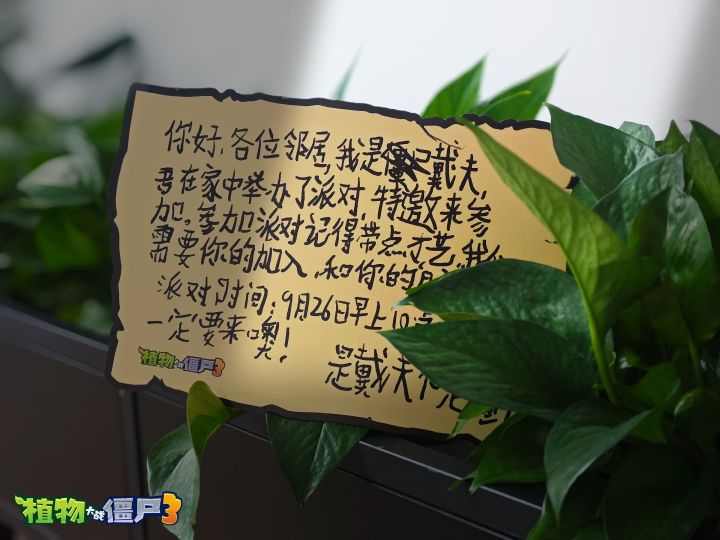 你好，各位邻居，我是戴夫，
吾在家中举办了派对，特邀来参
加。参加派对记得带点才艺，我
需要你的加入，和你的
派对时间：9月26日早上10
一定要来噢！
是戴夫
植物大战僵尸3
植物大战僵尸3